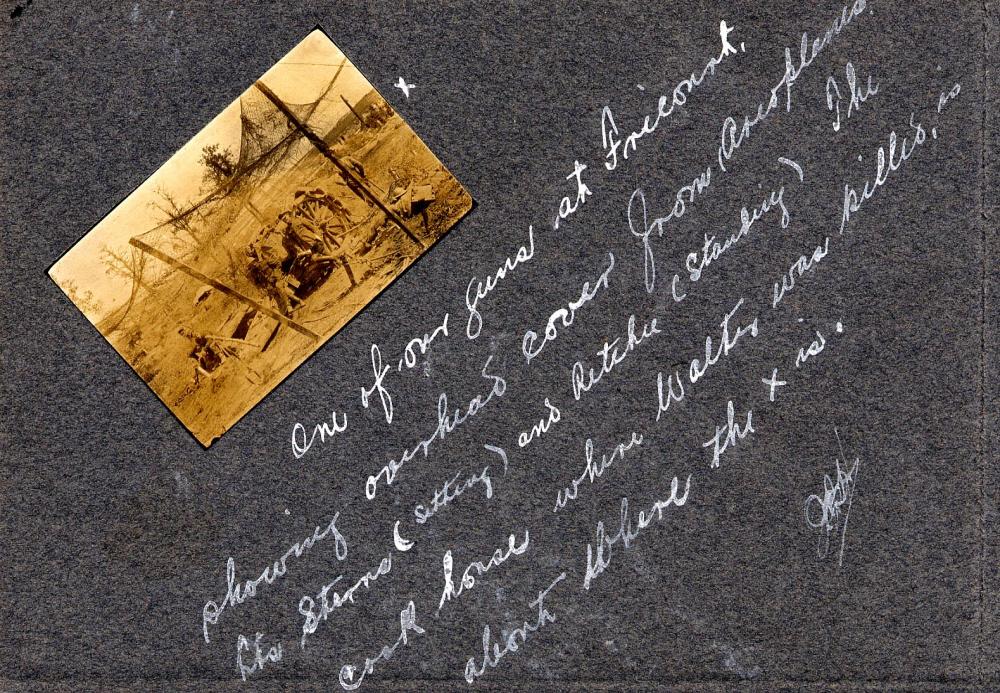 x
One of our guns at Fricourt.
showing overhead cover from Aeroplanes.
Lts Sterns (sitting) and Ritchie (standing) The
cook house where Walter was killed, is
about where the x is.